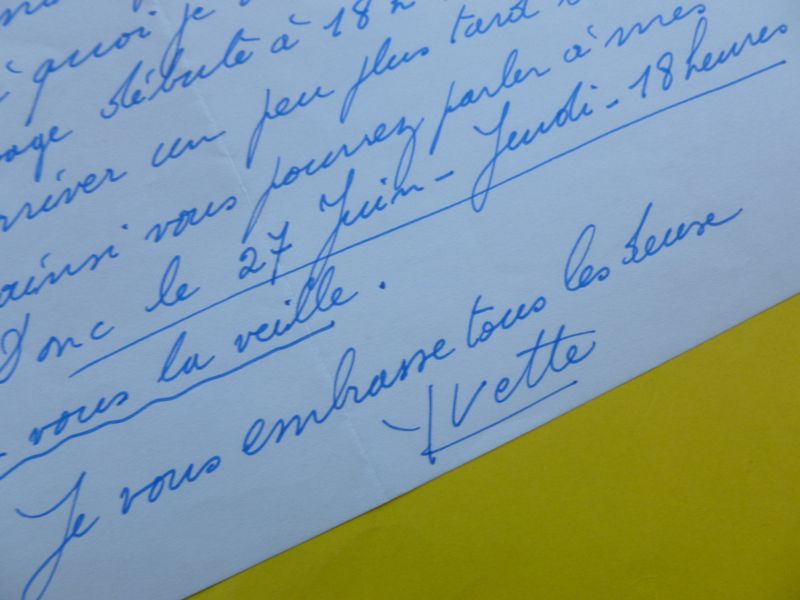 quoi je
age débute à 18 h
rriver un peu plus tard
ainsi vous pourrez parler à mes
Donc le 27 Juin - Jeudi - 18 heures
vous la veille.
Je vous embrasse tous les
Yvette